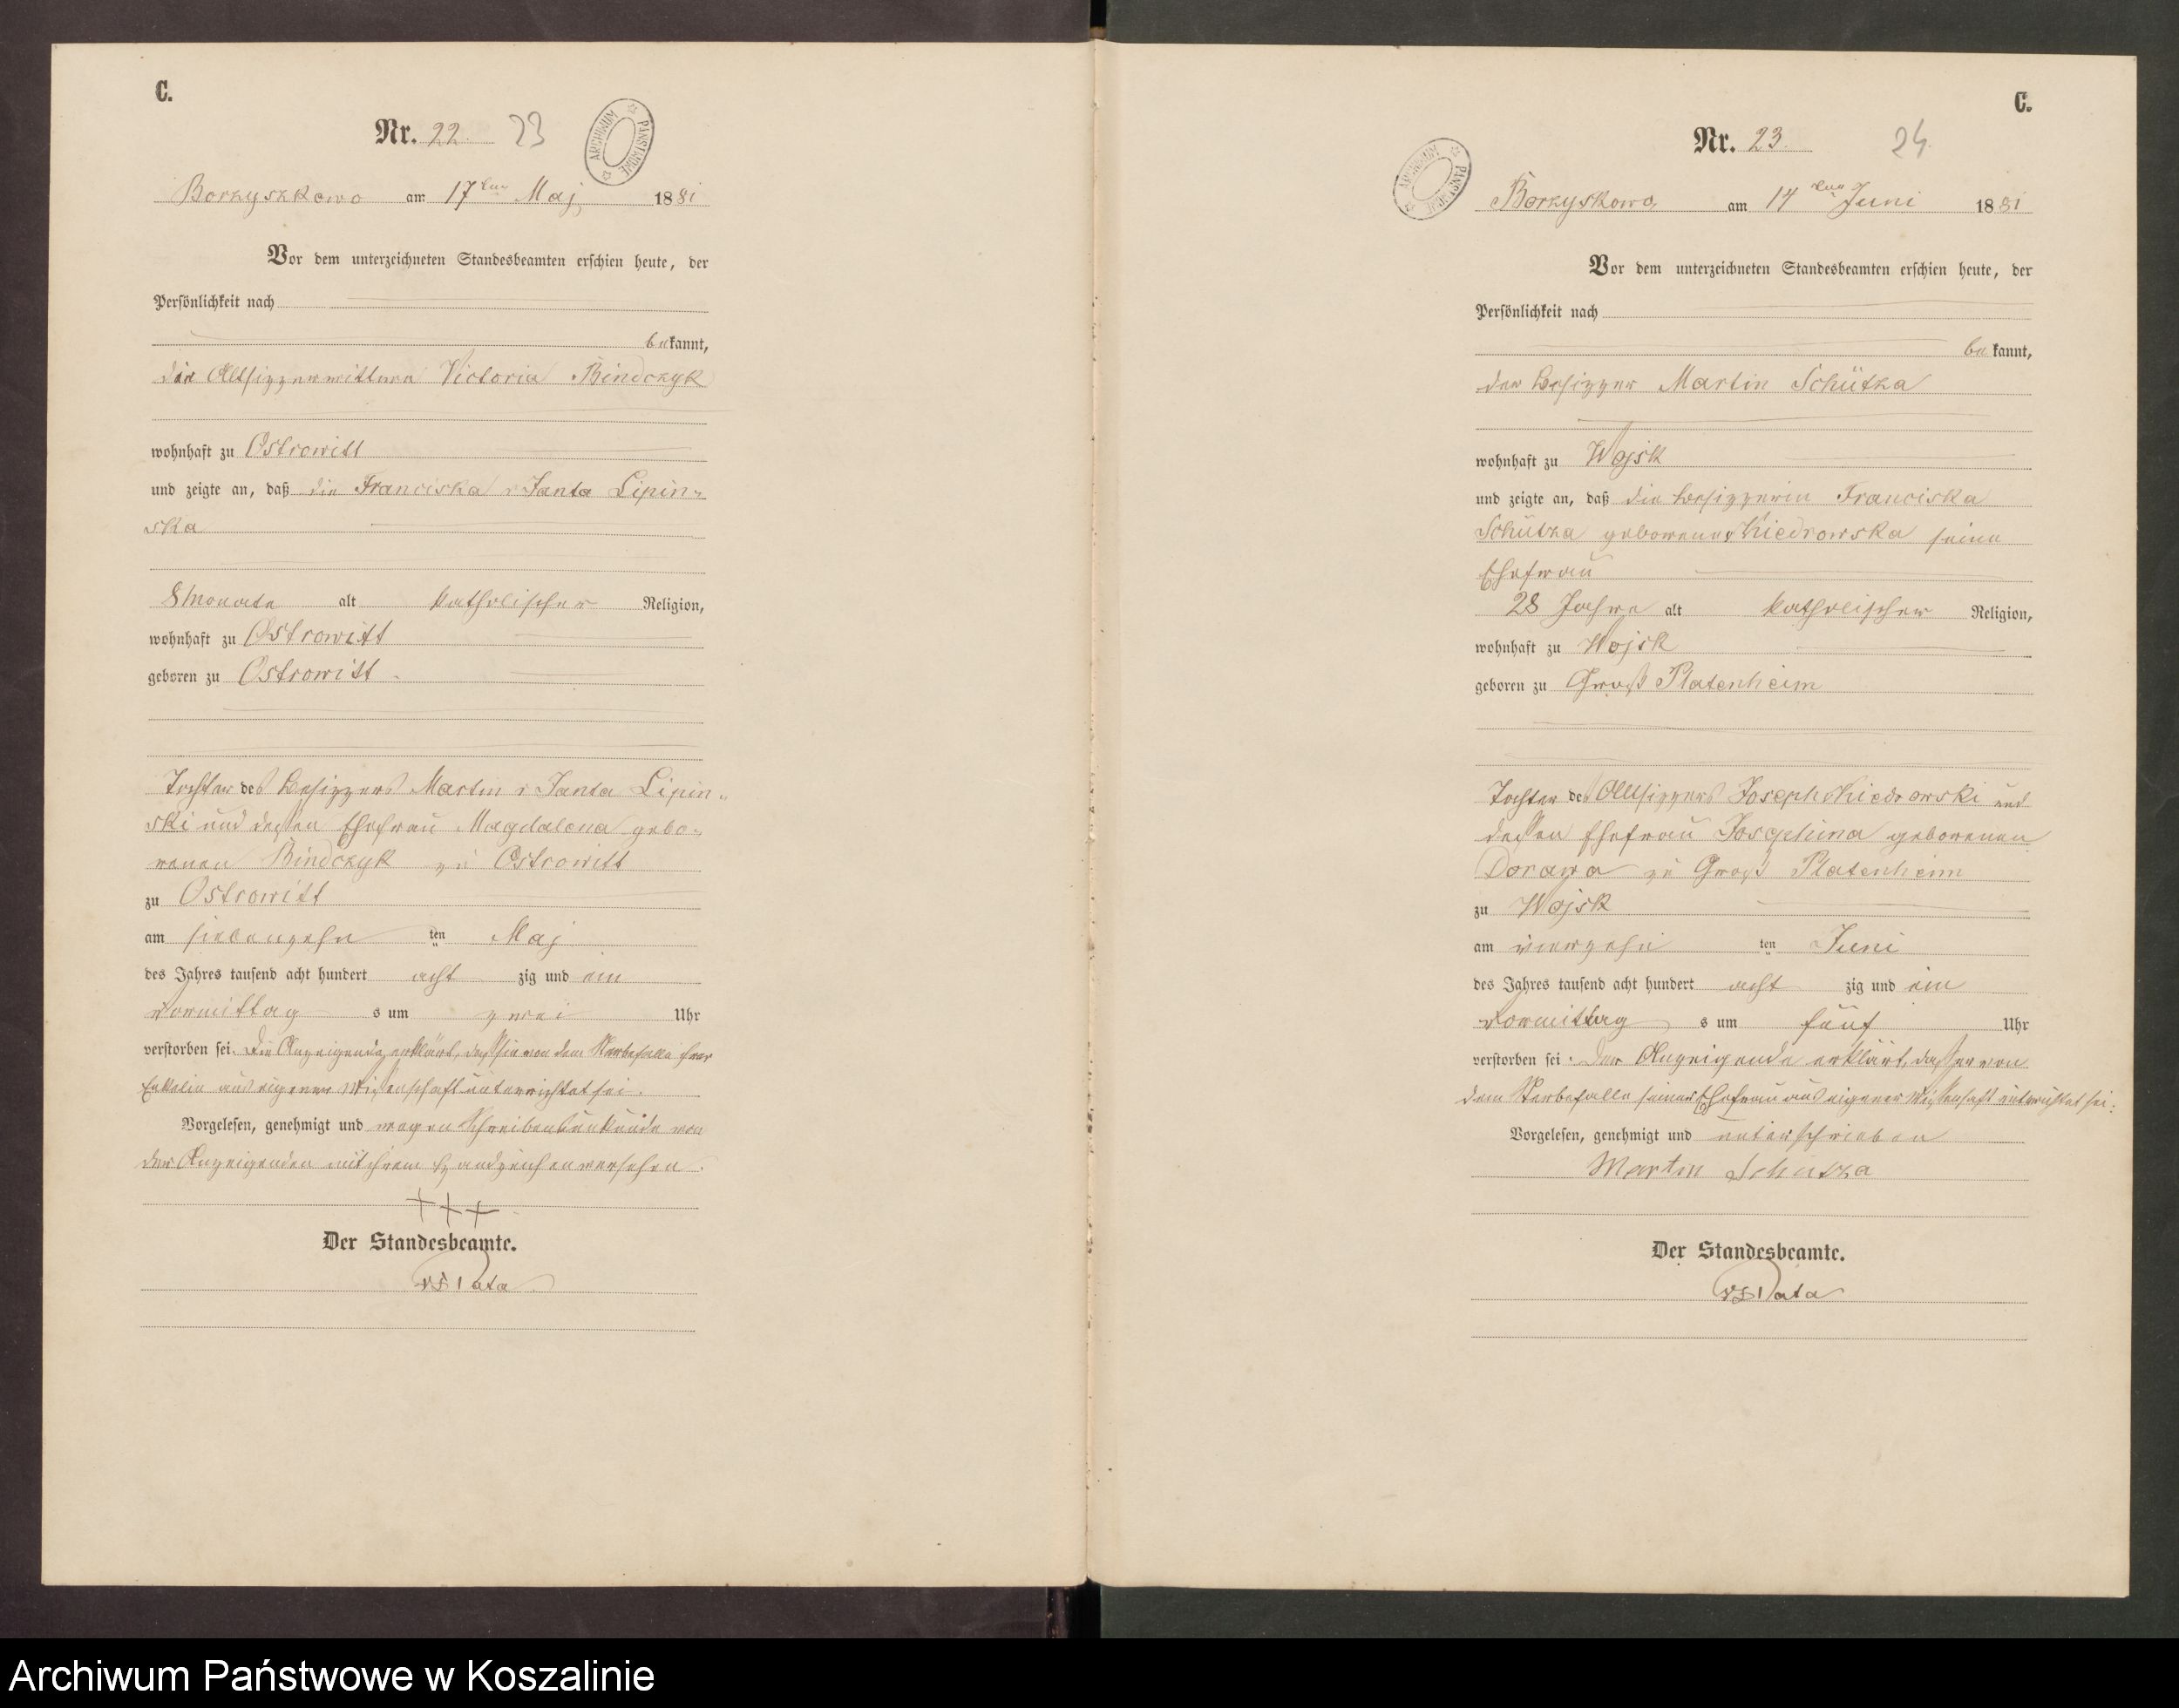 C.
Nr. 22. 23
ARCHIWUM PAŃSTWOWE
Borzyszkowo am 17ten Maj 1881
Vor dem unterzeichneten Standesbeamten erschien heute, der
Persönlichkeit nach
bekannt,
die Altsitzerwittwe Victoria Bindczyk
wohnhaft zu Ostrowitt
und zeigte an, daß die Franciska v Janta Lipin-
ska
8 Monate alt katholischer Religion,
wohnhaft zu Ostrowitt
geboren zu Ostrowitt
Tochter des Besitzers Martin v Janta Lipin-
ski und dessen Ehefrau Magdalena gebo-
renen Bindczyk zu Ostrowitt
zu Ostrowitt
am siebenzehn ten Maj
des Jahres tausend acht hundert acht zig und ein
Vormittag s um zwei Uhr
verstorben sei. Die Anzeigende erklärt, daß sie von dem Sterbefalle ihrer
Enkelin aus eigener Wissenschaft unterrichtet sei.
Vorgelesen, genehmigt und wegen Schreibensunkunde von
der Anzeigenden mit ihrem Handzeichen versehen.
+++
Der Standesbeamte.
C.
Nr. 23. 24
ARCHIWUM PAŃSTWOWE
Borzyskowo am 14ten Juni 1881
Vor dem unterzeichneten Standesbeamten erschien heute, der
Persönlichkeit nach
bekannt,
der Besitzer Martin Schütza
wohnhaft zu Wojsk
und zeigte an, daß die Besitzerin Franciska
Schütza geborene Kiedrowska seine
Ehefrau
28 Jahre alt katholischer Religion,
wohnhaft zu Wojsk
geboren zu Groß Platenheim
Tochter des Altsitzers Joseph Kiedrowski und
dessen Ehefrau Josephina geborenen
Dorawa zu Groß Platenheim
zu Wojsk
am vierzehn ten Juni
des Jahres tausend acht hundert acht zig und ein
Vormittag s um fünf Uhr
verstorben sei. Der Anzeigende erklärt, daß er von
dem Sterbefalle seiner Ehefrau aus eigener Wissenschaft unterrichtet sei.
Vorgelesen, genehmigt und unterschrieben
Martin Schütza
Der Standesbeamte.
Archiwum Państwowe w Koszalinie